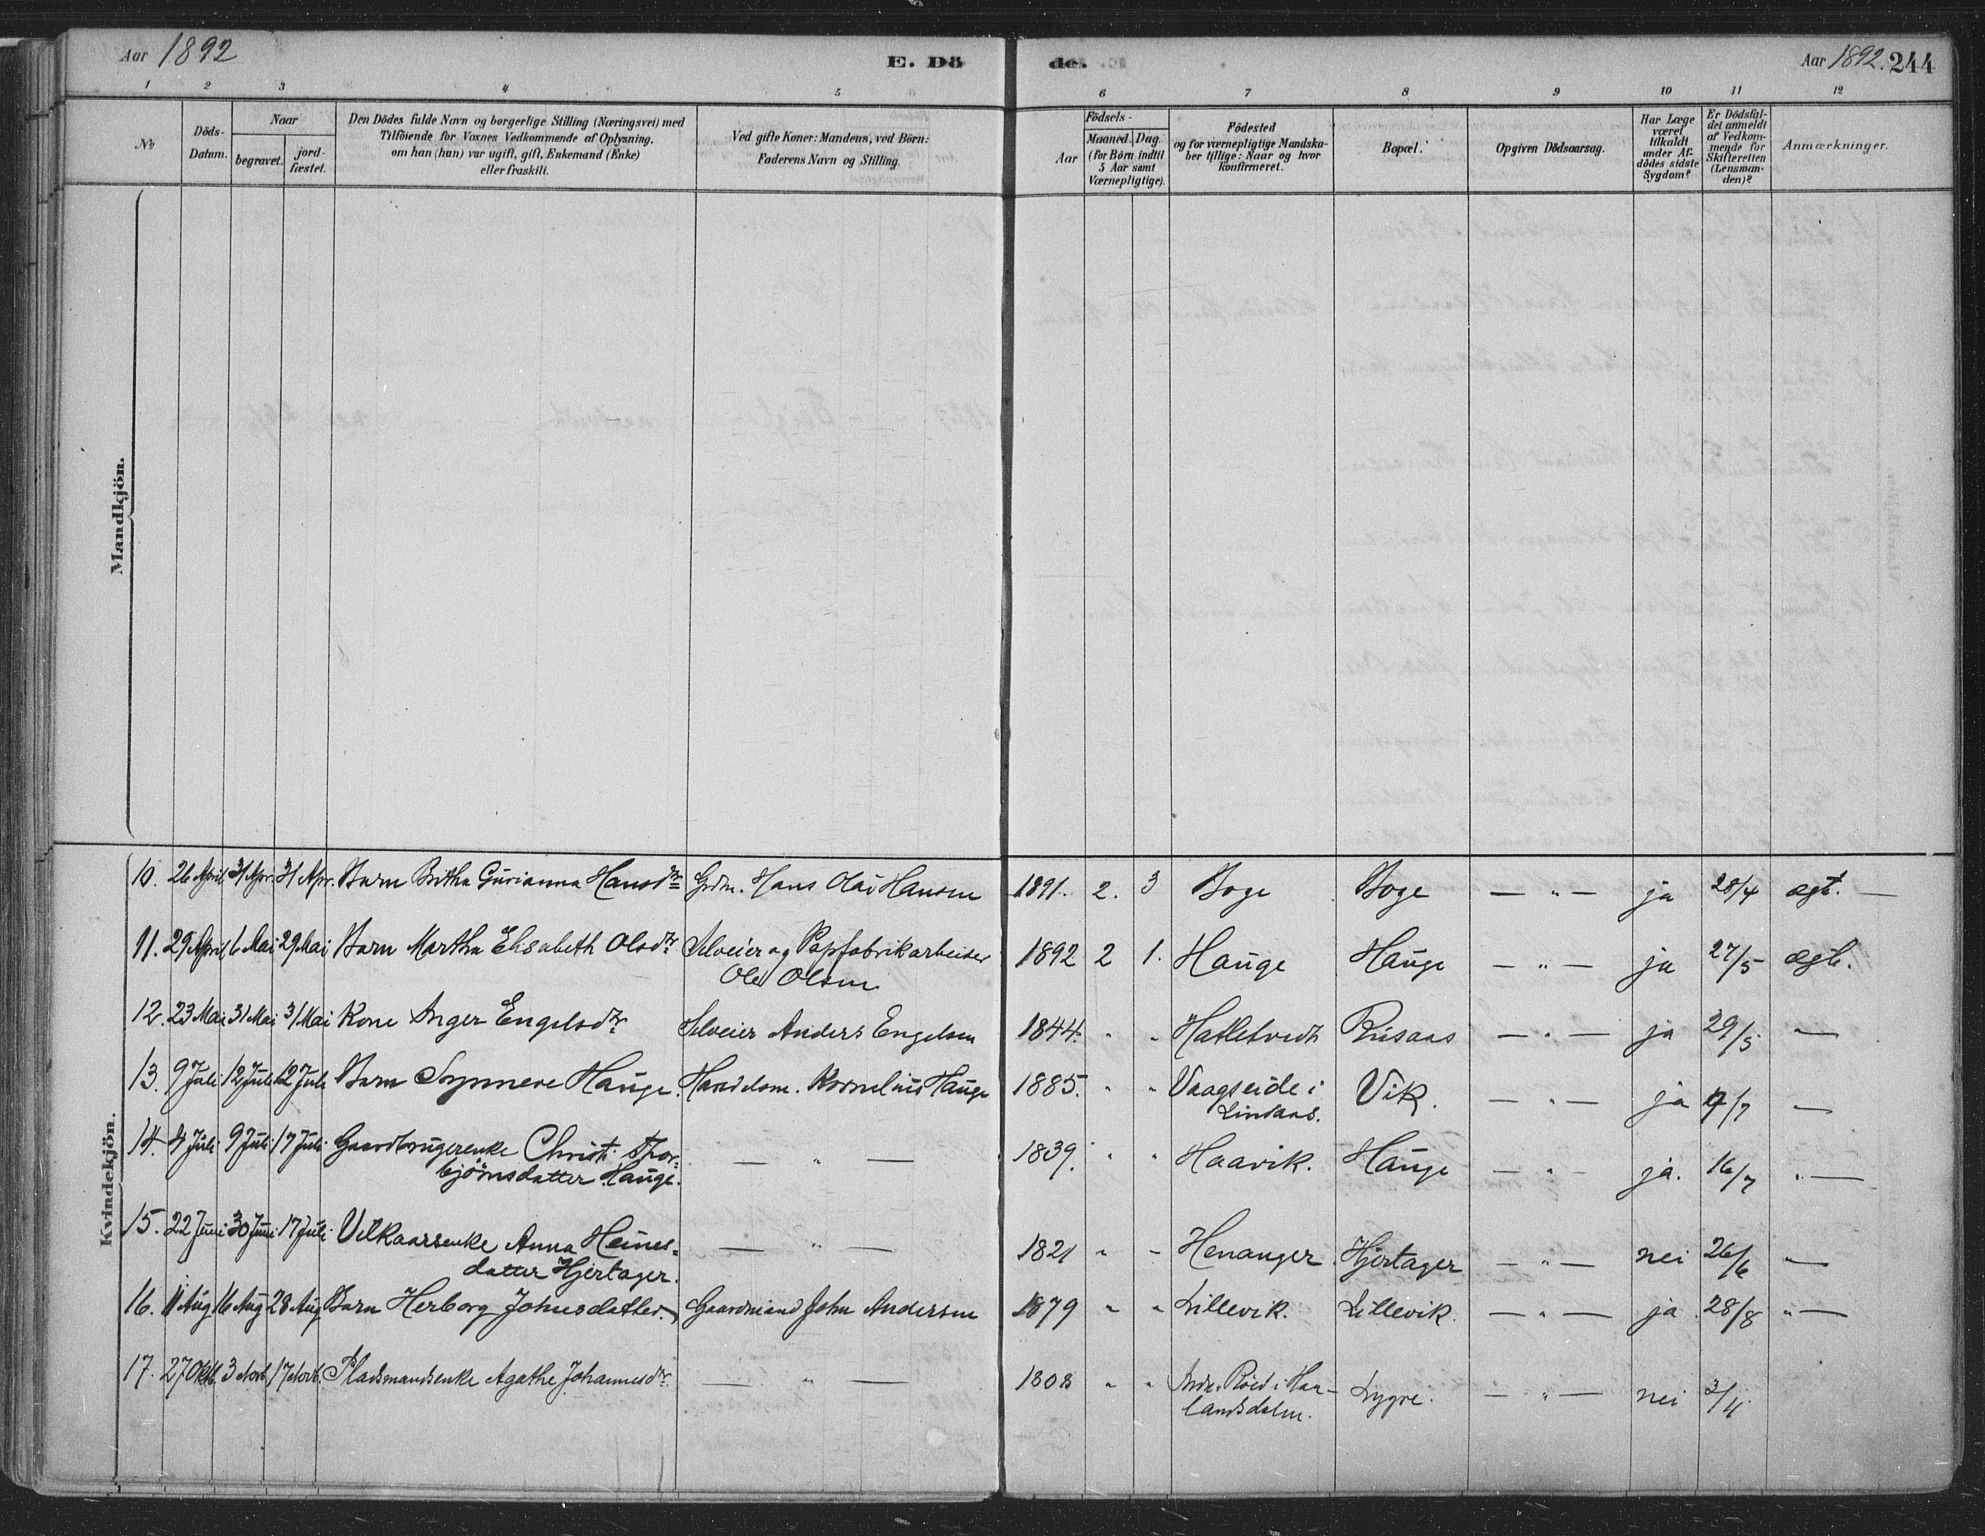 Aar 1892
E. Dö
de.
Aar 1892. 244
1 2 3 4 5 6 7 8 9 10 11 12
No
Döds-
Datum.
Naar
begravet.
jord-
fæstet.
Den Dödes fulde Navn og borgerlige Stilling (Næringsvei) med
Tilföiende for Voxnes Vedkommende af Oplysning,
om han (hun) var ugift, gift, Enkemand (Enke)
eller fraskilt.
Ved gifte Koner: Mandens, ved Börn:
Faderens Navn og Stilling.
Födsels-
Aar
Maaned. Dag.
(for Börn indtil
5 Aar samt
Værnepligtige).
Födested
og for værnepligtige Mandska-
ber tillige: Naar og hvor
konfirmeret.
Bopæl.
Opgiven Dödsaarsag.
Har Læge
været
tilkaldt
under Af-
dödes sidste
Sygdom?
Er Dödsfal-
det anmeldt
af Vedkom-
mende for
Skifteretten
(Lensman-
den)?
Anmærkninger.
Mandkjön.
Kvindekjön.
10. 26 April 31 Apr. 31 Apr. Barn Britha Gurianna Hansdr Grdm. Hans Olai Hansen 1891. 2. 3 Boge Boge — " — ja 28/4 ægt. —
11. 29 April 6 Mai 29 Mai Barn Martha Elisabeth Olsdr Selveier og Papfabrikarbeider
Ole Olsen 1892 2 1. Hauge Hauge — " — ja 27/5 ægt.
12. 23 Mai 31 Mai 31 Mai Kone Inger Engelsdr Selveier Anders Engelsen 1844. " " Hatletvedt Risaas — " — ja 29/5 —
13. 9 Juli 12 Juli 12 Juli Barn Synneve Hauge. Handelsm. Kornelius Hauge 1885. " " Vaagseide i
Lindaas. Vik. — " — ja 9/7 —
14. 4 Juli 9 Juli 17 Juli Gaardbrugerenke Christi Thor-
björnsdatter Hauge. — " — 1839. " " Haavik. Hauge — " — ja. 16/7 " —
15. 22 Juni 30 Juni 17 Juli Vilkaarsenke Anna Heines-
datter Hjertager. — " — 1821 " " Henanger Hjertager — " — nei 26/6 " —
16. 11 Aug 16 Aug 28 Aug Barn Herborg Johnsdatter. Gaardmand John Andersen 1879 " " Lillevik. Lillevik. — " — ja 28/8 " —
17. 27 Oktb 3 Novb. 17 Novb. Pladsmandsenke Agathe Johannesdr. — " — 1808 " " Röed i Haa-
landsdalen. Lygre. — " — nei 3/11